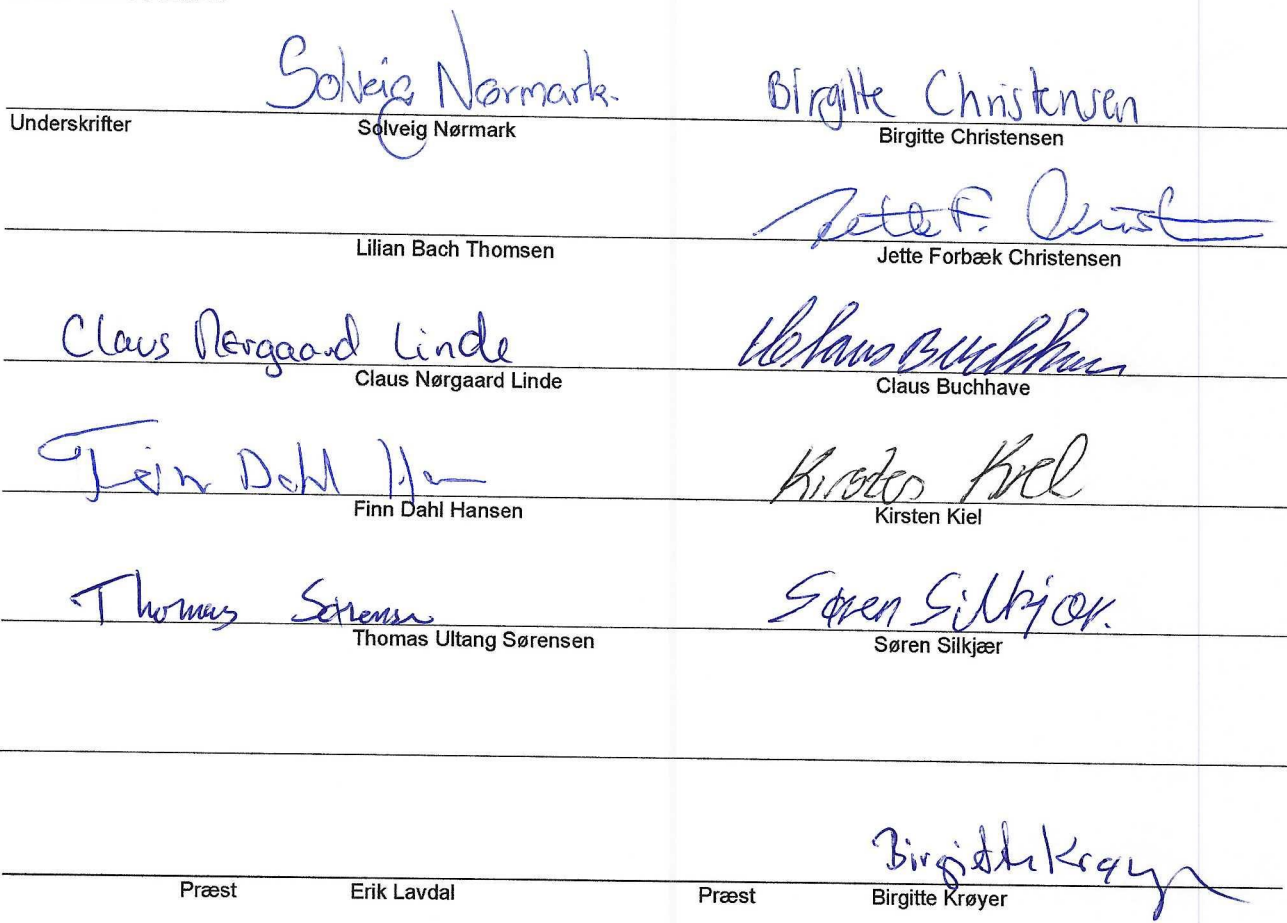 Solveig Nørmark. Birgitte Christensen
Underskrifter Solveig Nørmark Birgitte Christensen
Jette F. Christ
Lilian Bach Thomsen Jette Forbæk Christensen
Claus Nørgaard Linde Claus Buchhave
Claus Nørgaard Linde Claus Buchhave
Finn Dahl Kirsten Kiel
Finn Dahl Hansen Kirsten Kiel
Thomas Sørensen Søren Silkjær.
Thomas Ultang Sørensen Søren Silkjær
Birgitte Krøyer
Præst Erik Lavdal Præst Birgitte Krøyer